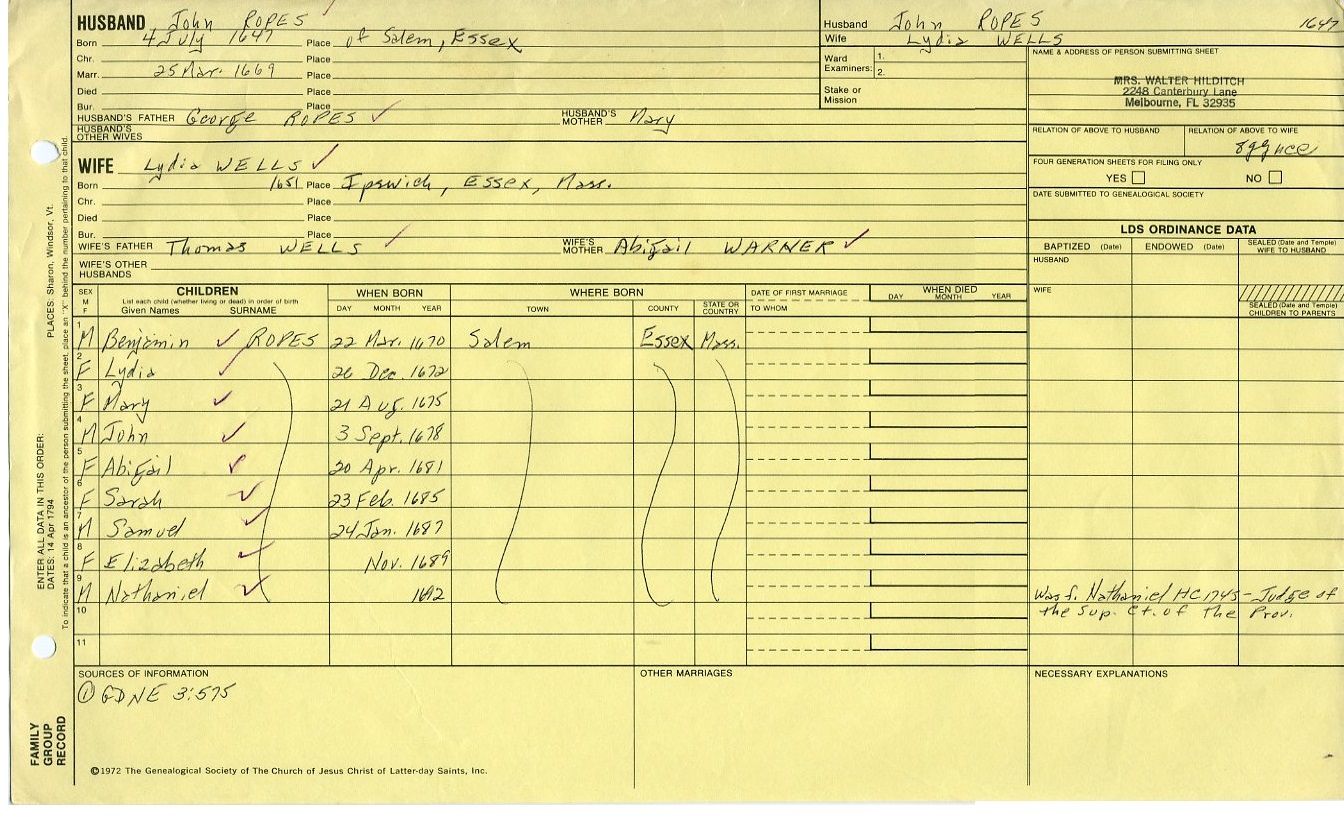 HUSBAND John ROPES
Born 4 July 1647 Place of Salem, Essex
Chr. Place
Marr. 25 Mar. 1669 Place
Died Place
Bur. Place
HUSBAND'S FATHER George ROPES HUSBAND'S MOTHER Mary
HUSBAND'S OTHER WIVES
WIFE Lydia WELLS
Born 1651 Place Ipswich, Essex, Mass.
Chr. Place
Died Place
Bur. Place
WIFE'S FATHER Thomas WELLS WIFE'S MOTHER Abigail WARNER
WIFE'S OTHER HUSBANDS
Husband John ROPES 1647
Wife Lydia WELLS
Ward Examiners: 1.
2.
Stake or Mission
NAME & ADDRESS OF PERSON SUBMITTING SHEET
MRS. WALTER HILDITCH
2248 Canterbury Lane
Melbourne, FL 32935
RELATION OF ABOVE TO HUSBAND RELATION OF ABOVE TO WIFE
8ggnce
FOUR GENERATION SHEETS FOR FILING ONLY
YES NO
DATE SUBMITTED TO GENEALOGICAL SOCIETY
LDS ORDINANCE DATA
BAPTIZED (Date) ENDOWED (Date) SEALED (Date and Temple) WIFE TO HUSBAND
HUSBAND
WIFE
SEALED (Date and Temple) CHILDREN TO PARENTS
SEX M F CHILDREN WHEN BORN WHERE BORN DATE OF FIRST MARRIAGE WHEN DIED
List each child (whether living or dead) in order of birth
Given Names SURNAME DAY MONTH YEAR TOWN COUNTY STATE OR COUNTRY TO WHOM DAY MONTH YEAR
1 M Benjamin ROPES 22 Mar. 1670 Salem Essex Mass.
2 F Lydia 26 Dec. 1672
3 F Mary 21 Aug. 1675
4 M John 3 Sept. 1678
5 F Abigail 20 Apr. 1681
6 F Sarah 23 Feb. 1685
7 M Samuel 24 Jan. 1687
8 F Elizabeth Nov. 1689
9 M Nathaniel 1692 Was f. Nathaniel HC 1745 - Judge of
the Sup. Ct. of the Prov.
10
11
SOURCES OF INFORMATION OTHER MARRIAGES NECESSARY EXPLANATIONS
① GDNE 3:575
©1972 The Genealogical Society of The Church of Jesus Christ of Latter-day Saints, Inc.
FAMILY GROUP RECORD
ENTER ALL DATA IN THIS ORDER:
DATES: 14 Apr 1794 PLACES: Sharon, Windsor, Vt.
To indicate that a child is an ancestor of the person submitting the sheet, place an "X" behind the number pertaining to that child.